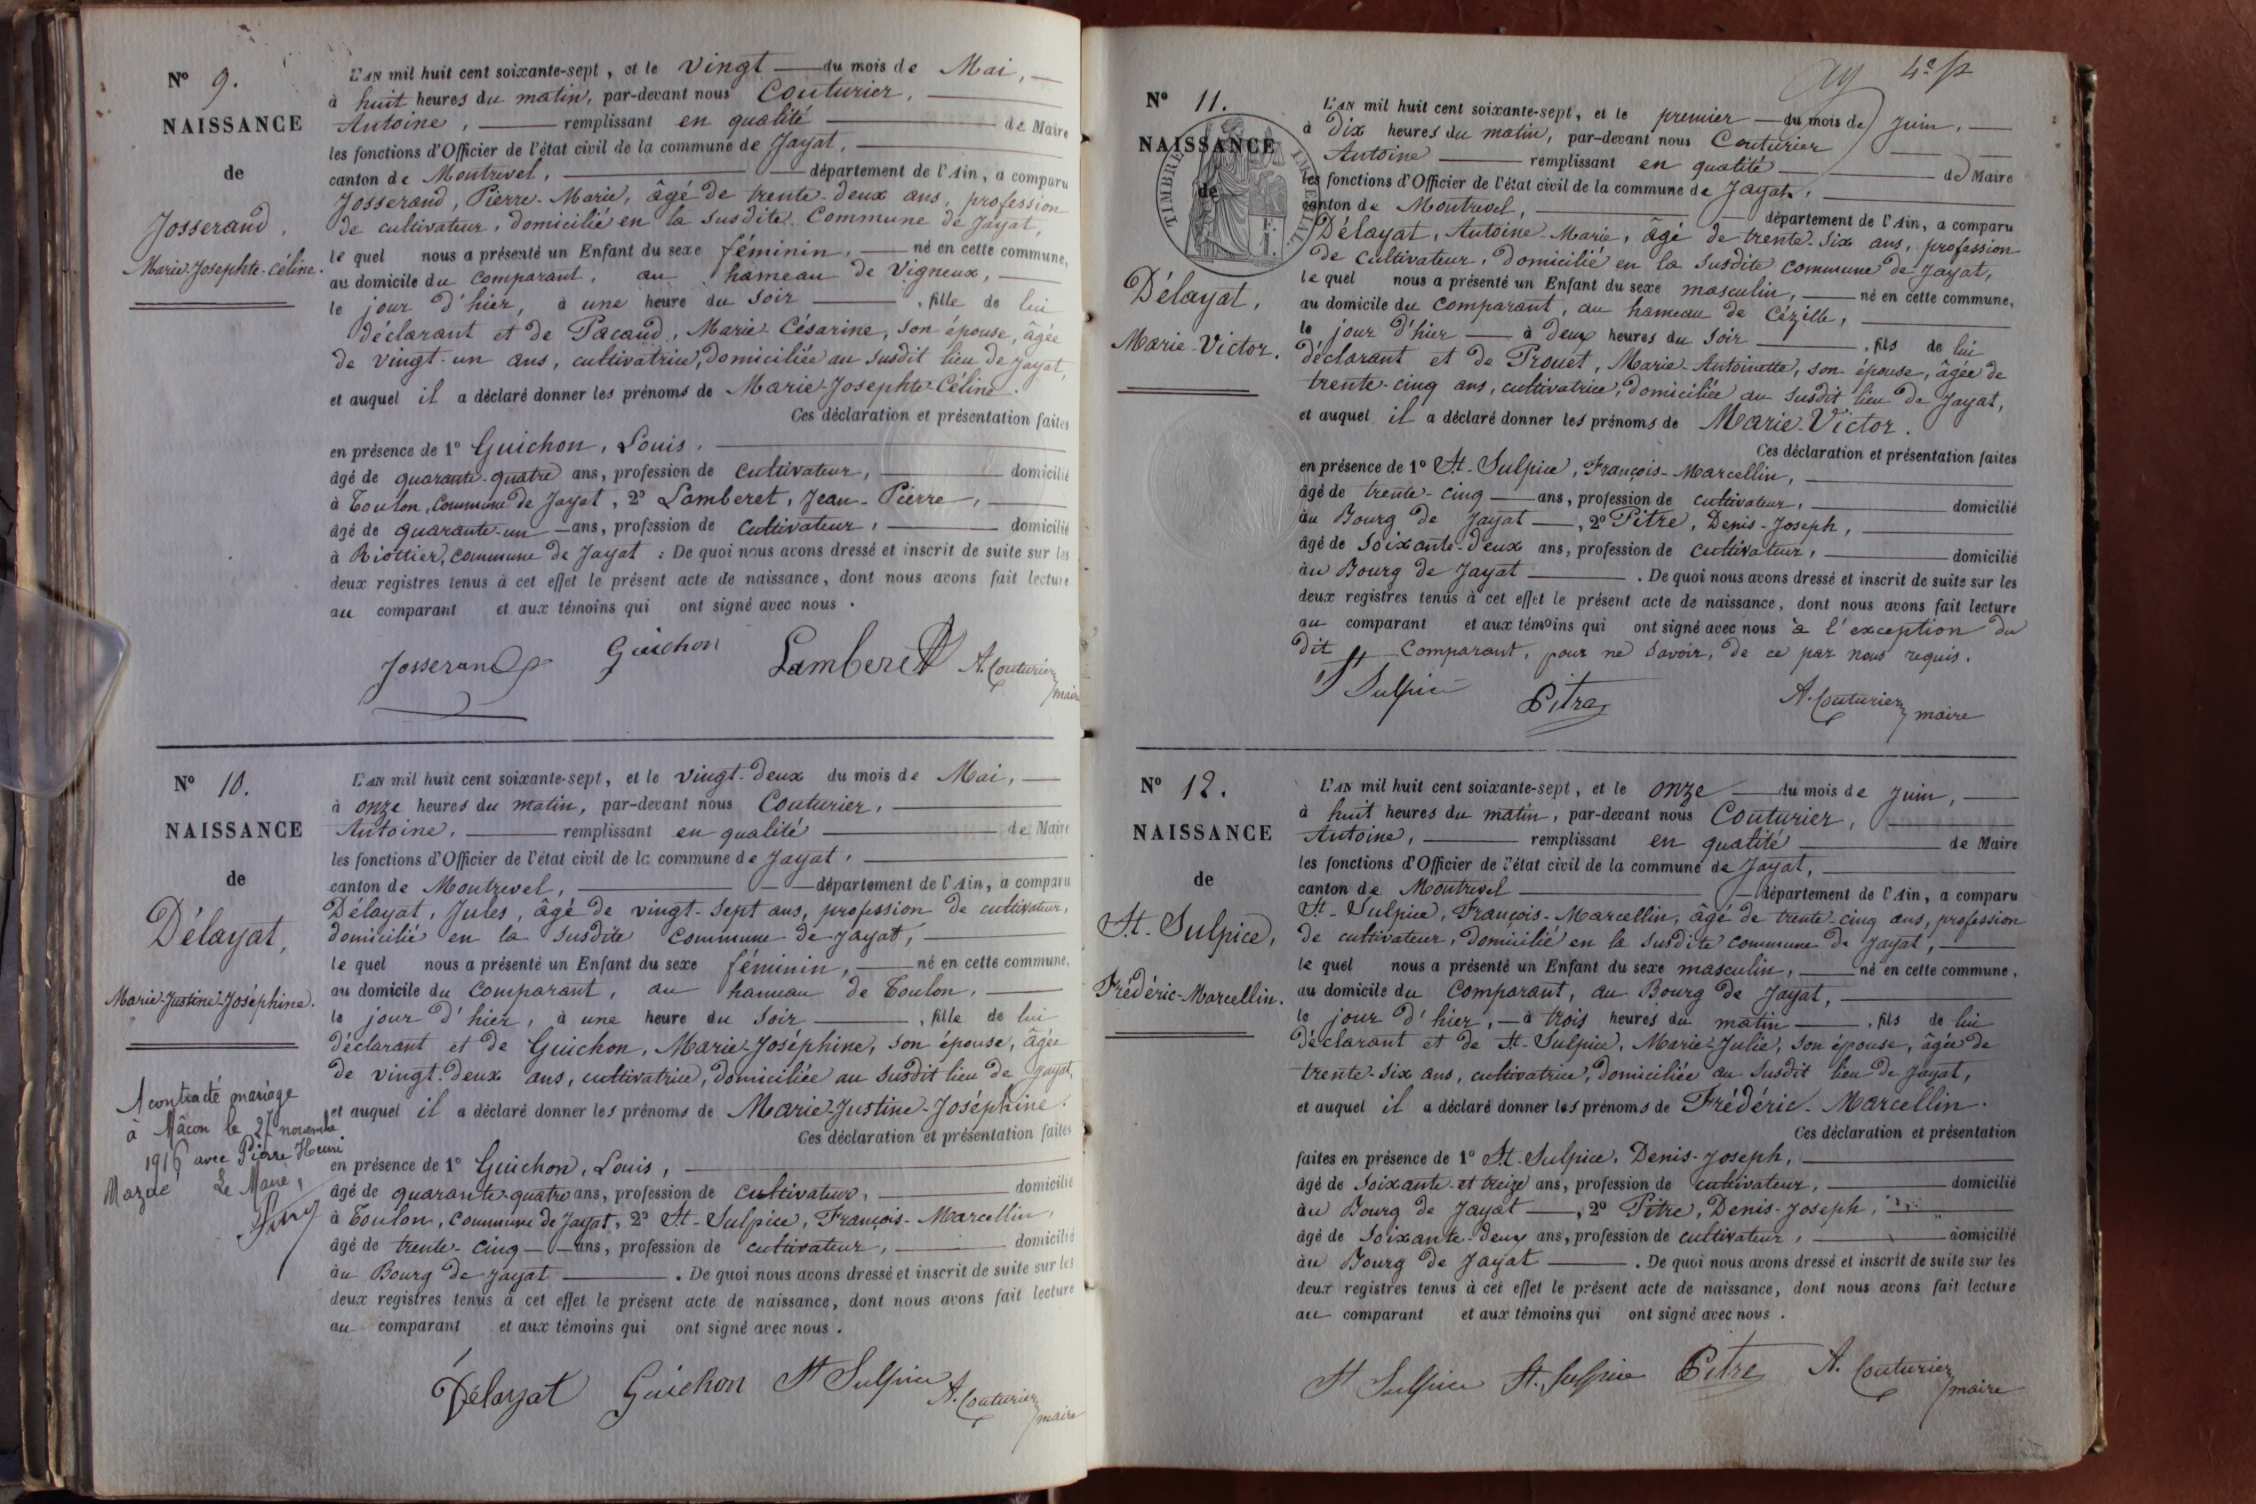 Nº 9.
NAISSANCE
de
Josserand,
Marie-Josephte-Céline.
L'AN mil huit cent soixante-sept, et le vingt du mois de Mai,
à huit heures du matin, par-devant nous Couturier,
Antoine, remplissant en qualité de Maire
les fonctions d'Officier de l'état civil de la commune de Jayat,
canton de Montrevel, département de l'Ain, a comparu
Josserand, Pierre-Marie, âgé de trente-deux ans, profession
de cultivateur, domicilié en la susdite Commune de Jayat,
le quel nous a présenté un Enfant du sexe féminin, né en cette commune,
au domicile du comparant, au hameau de Vigneux,
le jour d'hier, à une heure du soir, fille de lui
déclarant et de Pacaud, Marie-Césarine, son épouse, âgée
de vingt-un ans, cultivatrice, domiciliée au susdit lieu de Jayat,
et auquel il a déclaré donner les prénoms de Marie-Josephte-Céline.
Ces déclaration et présentation faites
en présence de 1º Guichon, Louis,
âgé de quarante-quatre ans, profession de cultivateur, domicilié
à Toulon, commune de Jayat, 2º Lamberet, Jean-Pierre,
âgé de quarante-un ans, profession de cultivateur, domicilié
à Riottier, commune de Jayat : De quoi nous avons dressé et inscrit de suite sur les
deux registres tenus à cet effet le présent acte de naissance, dont nous avons fait lecture
au comparant et aux témoins qui ont signé avec nous.
Josserand Guichon Lamberet A. Couturier
maire
Nº 10.
NAISSANCE
de
Délayat,
Marie-Justine-Joséphine.
A contracté mariage
à Mâcon le 27 novembre
1916 avec Pierre Henri
Mazué Le Maire,
L'AN mil huit cent soixante-sept, et le vingt-deux du mois de Mai,
à onze heures du matin, par-devant nous Couturier,
Antoine, remplissant en qualité de Maire
les fonctions d'Officier de l'état civil de la commune de Jayat,
canton de Montrevel, département de l'Ain, a comparu
Délayat, Jules, âgé de vingt-sept ans, profession de cultivateur,
domicilié en la susdite commune de Jayat,
le quel nous a présenté un Enfant du sexe féminin, né en cette commune,
au domicile du comparant, au hameau de Toulon,
le jour d'hier, à une heure du soir, fille de lui
déclarant et de Guichon, Marie-Joséphine, son épouse, âgée
de vingt-deux ans, cultivatrice, domiciliée au susdit lieu de Jayat,
et auquel il a déclaré donner les prénoms de Marie-Justine-Joséphine.
Ces déclaration et présentation faites
en présence de 1º Guichon, Louis,
âgé de quarante-quatre ans, profession de cultivateur, domicilié
à Toulon, commune de Jayat, 2º St-Sulpice, François-Marcellin,
âgé de trente-cinq ans, profession de cultivateur, domicilié
au Bourg de Jayat. De quoi nous avons dressé et inscrit de suite sur les
deux registres tenus à cet effet le présent acte de naissance, dont nous avons fait lecture
au comparant et aux témoins qui ont signé avec nous.
Délayat Guichon St Sulpice A. Couturier
maire
4e f
Nº 11.
NAISSANCE
de
TIMBRE IMPÉRIAL
Délayat,
Marie-Victor.
L'AN mil huit cent soixante-sept, et le premier du mois de Juin,
à dix heures du matin, par-devant nous Couturier
Antoine remplissant en qualité de Maire
les fonctions d'Officier de l'état civil de la commune de Jayat,
canton de Montrevel, département de l'Ain, a comparu
Délayat, Antoine-Marie, âgé de trente-six ans, profession
de cultivateur, domicilié en la susdite commune de Jayat,
le quel nous a présenté un Enfant du sexe masculin, né en cette commune,
au domicile du comparant, au hameau de Cézille,
le jour d'hier à deux heures du soir, fils de lui
déclarant et de Prouet, Marie-Antoinette, son épouse, âgée de
trente-cinq ans, cultivatrice, domiciliée au susdit lieu de Jayat,
et auquel il a déclaré donner les prénoms de Marie-Victor.
Ces déclaration et présentation faites
en présence de 1º St-Sulpice, François-Marcellin,
âgé de trente-cinq ans, profession de cultivateur, domicilié
au Bourg de Jayat, 2º Pitre, Denis-Joseph,
âgé de soixante-deux ans, profession de cultivateur, domicilié
au Bourg de Jayat. De quoi nous avons dressé et inscrit de suite sur les
deux registres tenus à cet effet le présent acte de naissance, dont nous avons fait lecture
au comparant et aux témoins qui ont signé avec nous à l'exception du
dit Comparant, pour ne savoir, de ce par nous requis.
St Sulpice Pitre A. Couturier
maire
Nº 12.
NAISSANCE
de
St-Sulpice,
Frédéric-Marcellin.
L'AN mil huit cent soixante-sept, et le onze du mois de Juin,
à huit heures du matin, par-devant nous Couturier,
Antoine, remplissant en qualité de Maire
les fonctions d'Officier de l'état civil de la commune de Jayat,
canton de Montrevel département de l'Ain, a comparu
St-Sulpice, François-Marcellin, âgé de trente-cinq ans, profession
de cultivateur, domicilié en la susdite commune de Jayat,
le quel nous a présenté un Enfant du sexe masculin, né en cette commune,
au domicile du comparant, au Bourg de Jayat,
le jour d'hier, à trois heures du matin, fils de lui
déclarant et de St-Sulpice, Marie-Julie, son épouse, âgée de
trente-six ans, cultivatrice, domiciliée au susdit lieu de Jayat,
et auquel il a déclaré donner les prénoms de Frédéric-Marcellin.
Ces déclaration et présentation
faites en présence de 1º St-Sulpice, Denis-Joseph,
âgé de soixante et treize ans, profession de cultivateur, domicilié
au Bourg de Jayat, 2º Pitre, Denis-Joseph,
âgé de soixante-deux ans, profession de cultivateur, domicilié
au Bourg de Jayat. De quoi nous avons dressé et inscrit de suite sur les
deux registres tenus à cet effet le présent acte de naissance, dont nous avons fait lecture
au comparant et aux témoins qui ont signé avec nous.
St Sulpice St. Sulpice Pitre A. Couturier
maire